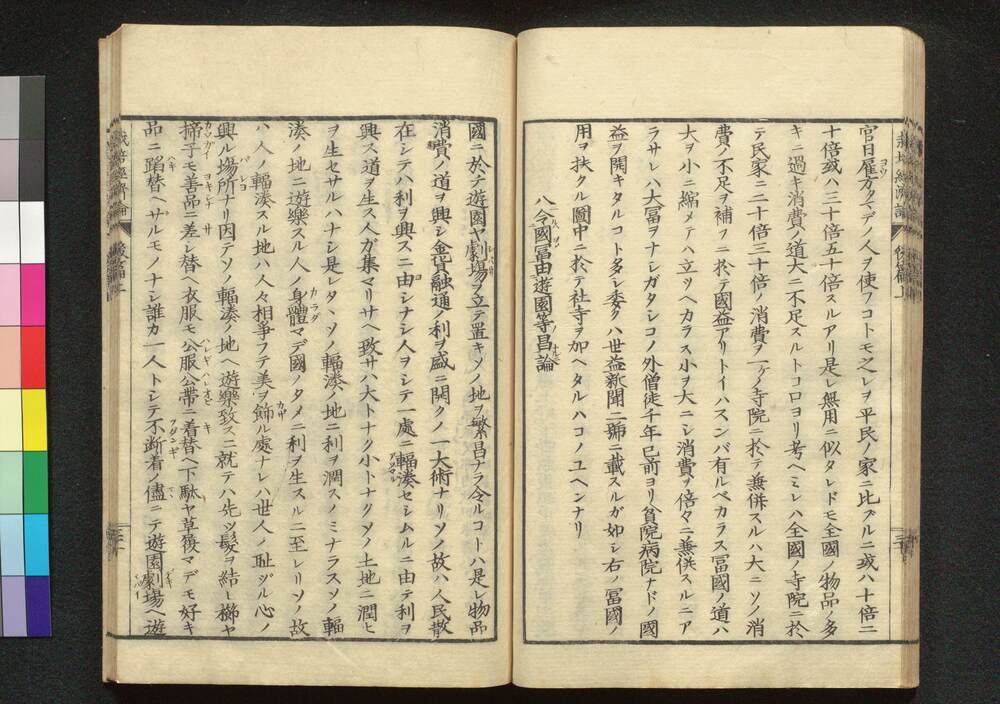 官日雇方タマデノ人ヲ使フコトモ之レヲ平民ノ家ニ比ブルニ或ハ十倍二
十倍或ハ三十倍五十倍スルアリ是レ無用ニ似タレドモ全國ノ物品ノ多
キニ過キ消費ノ道大ニ不足スルトコロヨリ考ヘミレハ全國ノ寺院ニ於
テ民家ニ二十倍三十倍ノ消費ヲ一ケノ寺院ニ於テ兼併スルハ大ニソノ消
費ノ不足ヲ補フニ於テ國益アリトイハスンバ有ルベカラス冨國ノ道ハ
大ヲ小ニ縮メテハ立ツヘカラス小ヲ大ニシ消費ヲ倍々ニ兼併スルニア
ラサレハ大冨ヲナシガタシコノ外僧徒千年已前ヨリ貧院病院ナドノ國
益ヲ開キタルコト多シ委クハ世益新聞二號ニ載スルガ如シ右ノ冨國ノ
用ヲ扶クル圖中ニ於テ社寺ヲ加ヘタルハコノユヘンナリ
八令國冨由遊園等昌論
國ニ於テ遊園ヤ劇場ヲ立テ置キソノ地ヲ繁昌ナラ令ルコトハ是レ物品
消費ノ道ヲ興シ金貨融通ノ利ヲ盛ニ開クノ一大術ナリソノ故ハ人民散
在シテハ利ヲ興スニ由シナシ人ヲシテ一處ニ輻湊セシムルニ由テ利ヲ
興ス道ヲ生ス人ガ集マリサヘ致サハ大トナク小トナクソノ土地ニ潤ヒ
ヲ生セサルハナシ是レタヽソノ輻湊ノ地ニ利ヲ潤スノミナラスソノ輻
湊ノ地ニ遊樂スル人ノ身體マデ國ノタメニ利ヲ生スルニ至レリソノ故
ハ人ノ輻湊スル地ハ人々相爭フテ美ヲ飾ル處ナレハ世人ノ耻ヂル心ノ
興ル場所ナリ因テソノ輻湊ノ地ヘ遊樂致スニ就テハ先ツ髮ヲ結ヒ櫛ヤ
搔子モ善品ニ差シ替ヘ衣服モ公服公帶ニ着替ヘ下駄ヤ草履マデモ好キ
品ニ蹈替ヘサルモノナシ誰カ一人トシテ不断着ノ儘ニテ遊園劇場ヘ遊